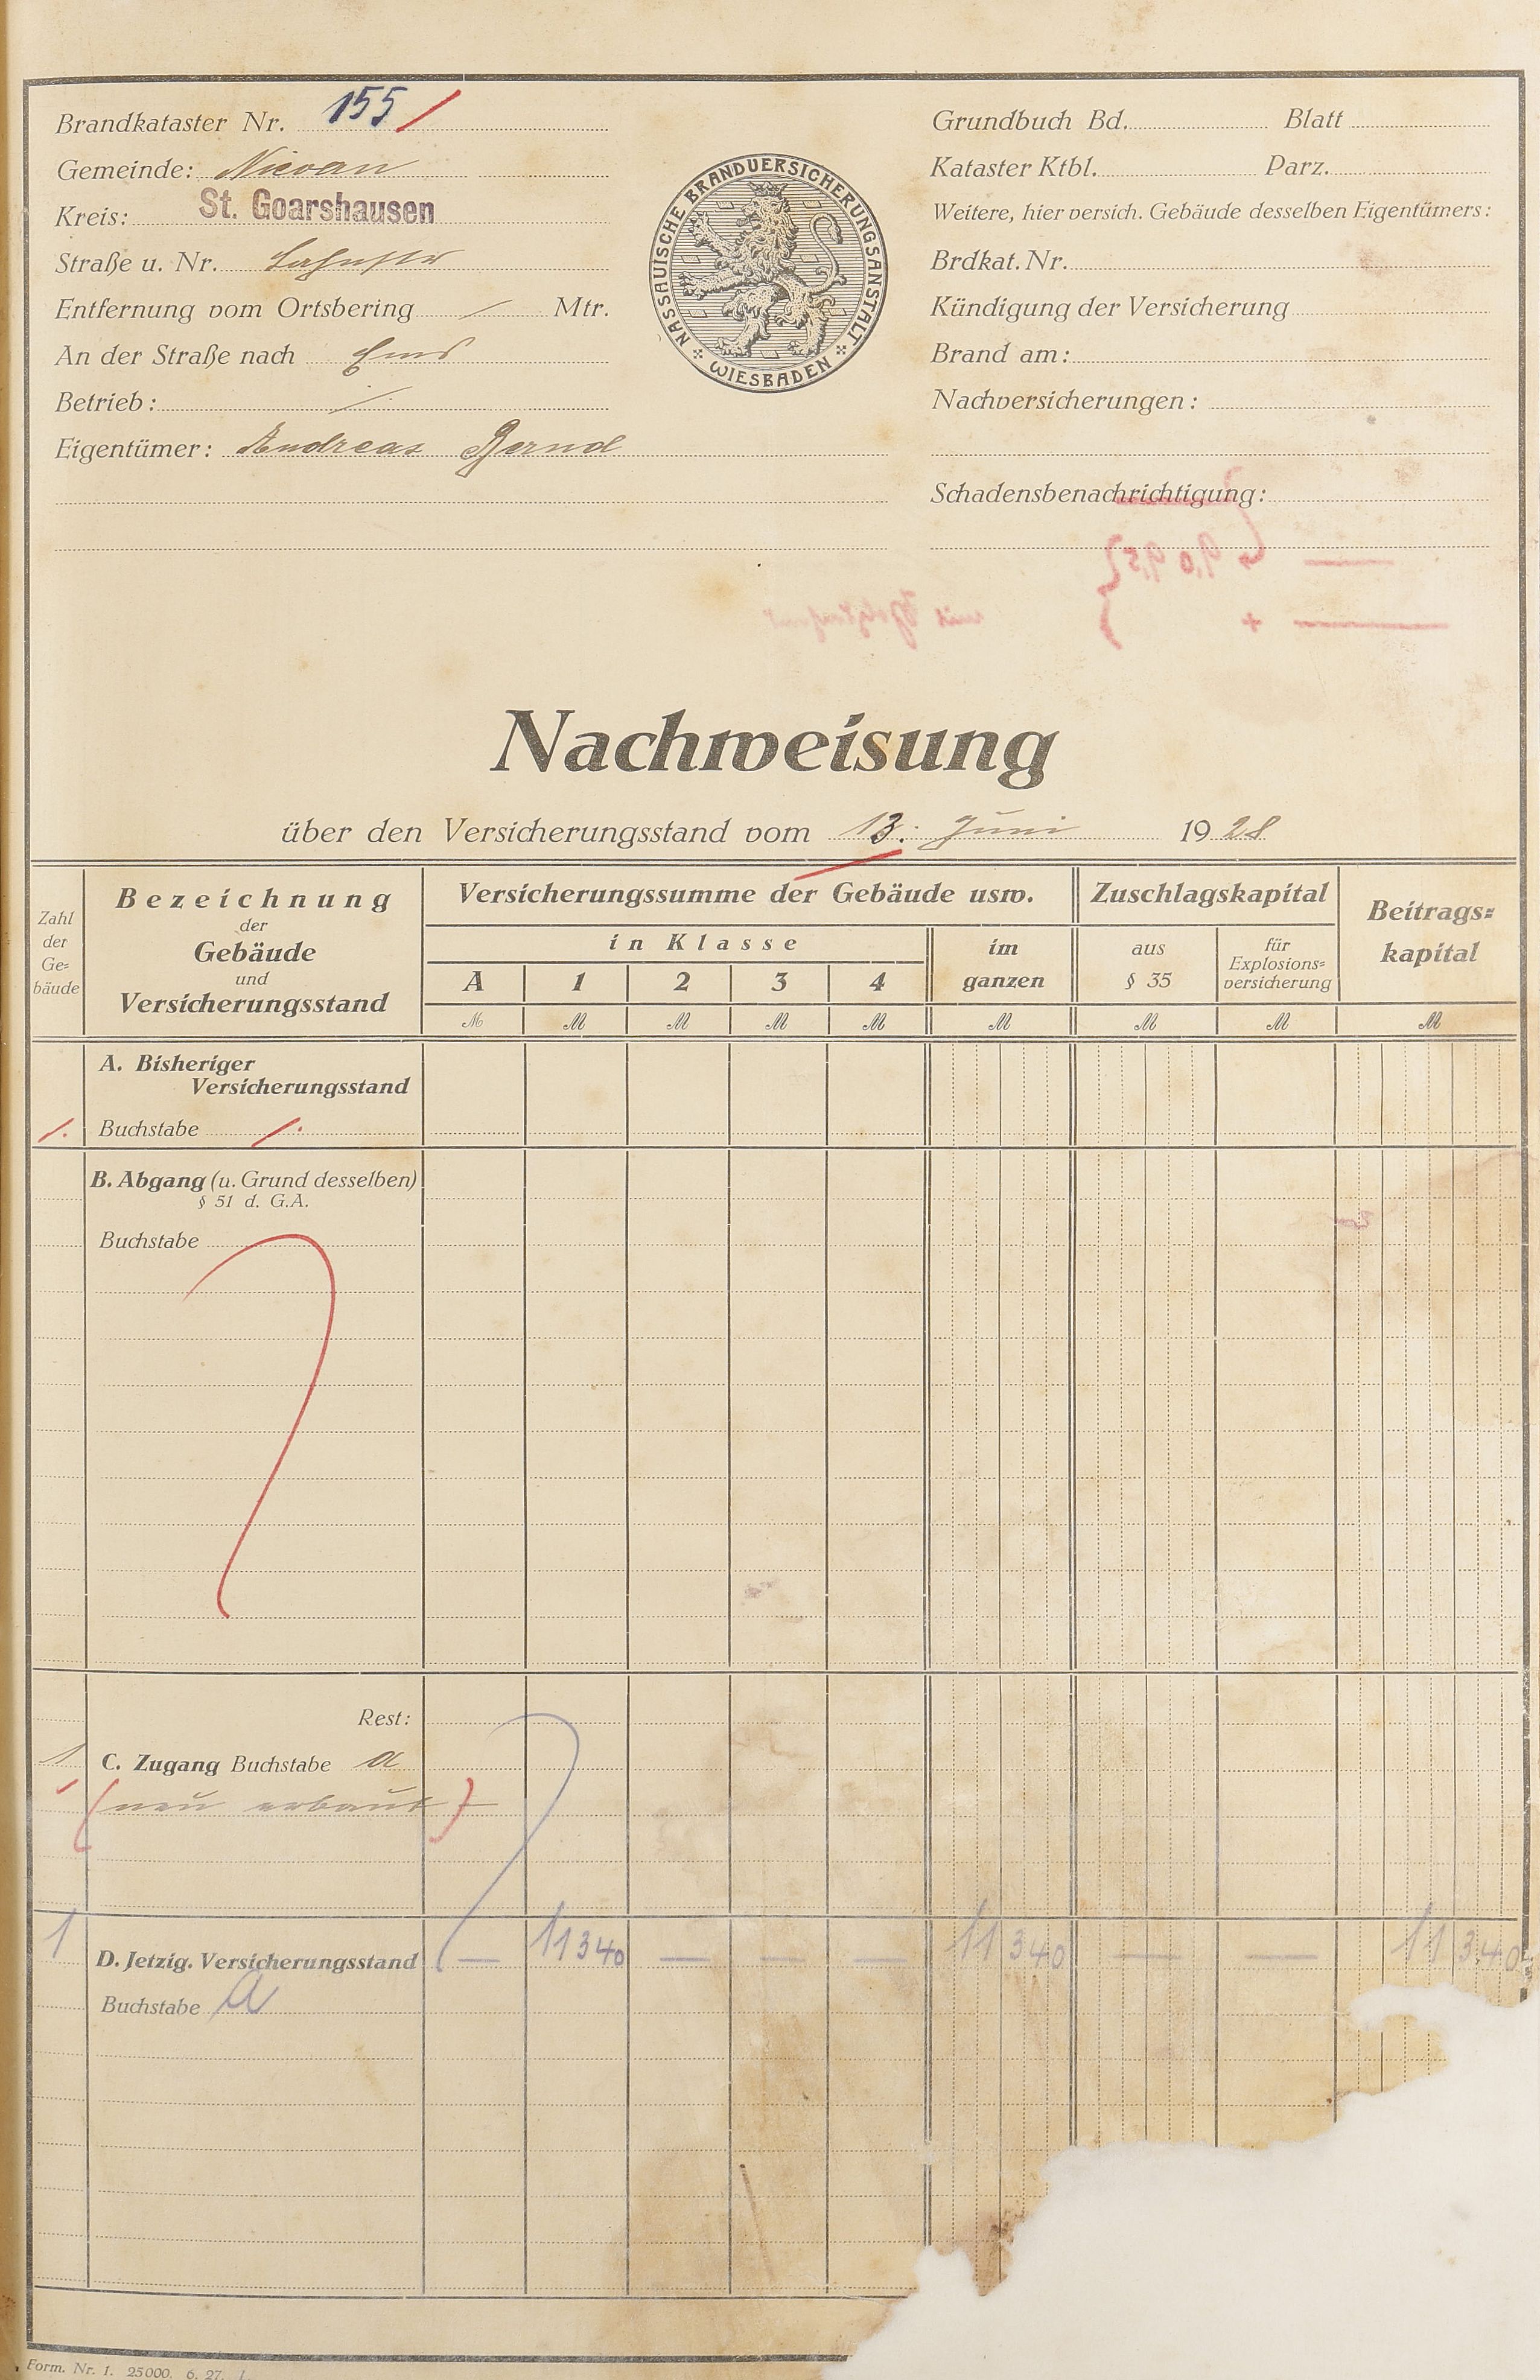 Brandkataster Nr. 155
Gemeinde: Nievern
Kreis: St. Goarshausen
Straße u. Nr. Lahnstr
Entfernung vom Ortsbering / Mtr.
An der Straße nach Ems
Betrieb: /.
Eigentümer: Andreas Bernd
NASSAUISCHE BRANDVERSICHERUNGSANSTALT
WIESBADEN
Grundbuch Bd. Blatt
Kataster Ktbl. Parz.
Weitere, hier versich. Gebäude desselben Eigentümers:
Brdkat. Nr.
Kündigung der Versicherung
Brand am:
Nachversicherungen:
Schadensbenachrichtigung:
Nachweisung
über den Versicherungsstand vom 13. Juni 1928
Zahl
der
Ge-
bäude
Bezeichnung
der
Gebäude
und
Versicherungsstand
Versicherungssumme der Gebäude usw.
in Klasse
A 1 2 3 4
im
ganzen
Zuschlagskapital
aus
§ 35
für
Explosions-
versicherung
Beitrags-
kapital
M M M M M M M M M
A. Bisheriger
Versicherungsstand
/. Buchstabe /.
B. Abgang (u. Grund desselben)
§ 51 d. G.A.
Buchstabe
Rest:
1 C. Zugang Buchstabe a
(neu erbaut)
1 D. Jetzig. Versicherungsstand — 11 340 — — — 11 340 — — 11 340
Buchstabe a
Form. Nr. 1. 25000. 6. 27.